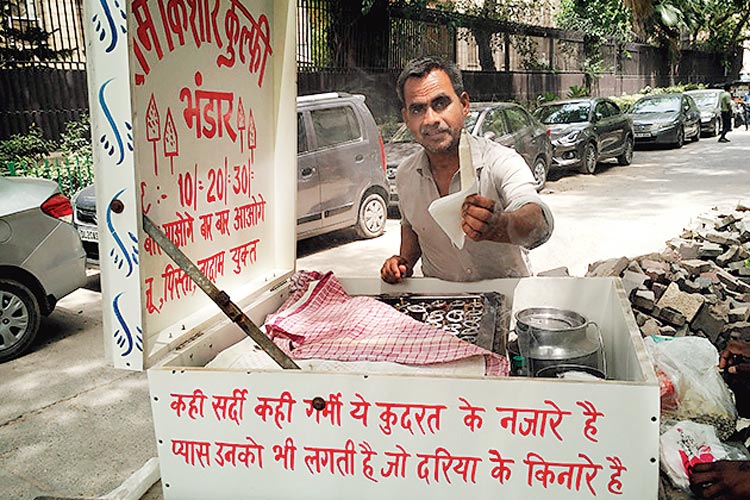 किशोर कुल्फी
भंडार
10/- 20/- 30/-
बार बार आओगे
पिस्ता, बादाम युक्त
कही सर्दी कही गर्मी ये कुदरत के नजारे है
प्यास उनको भी लगती है जो दरिया के किनारे है